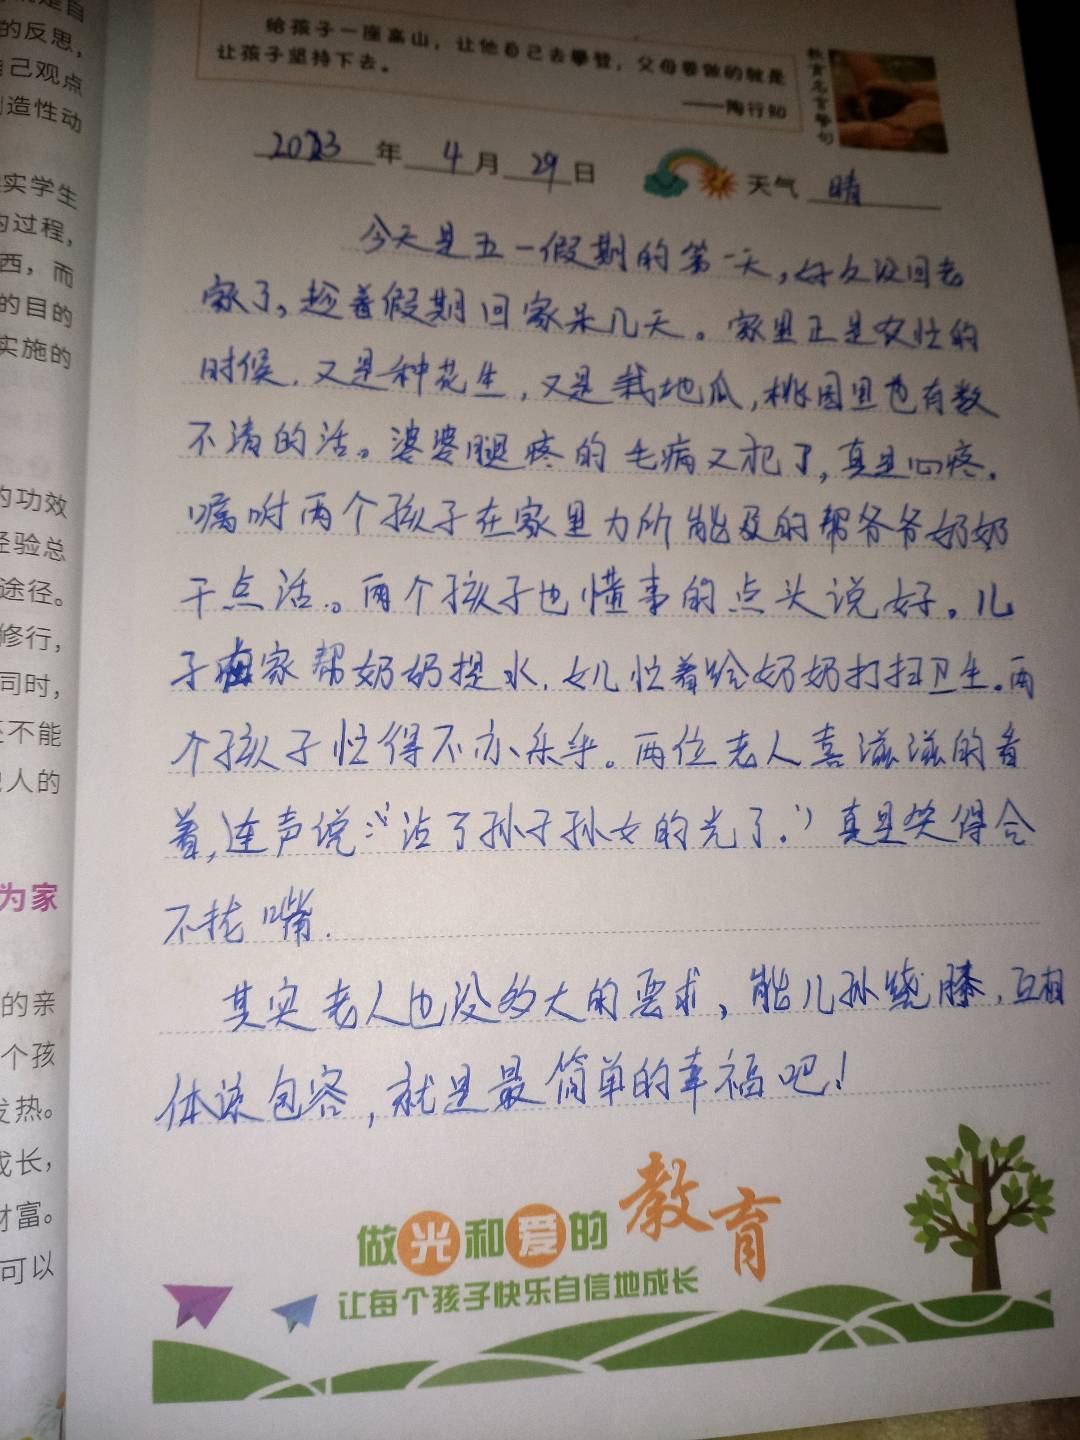 的反思，
自己观点
创造性动
实学生
的过程，
西，而
的目的
实施的
的功效
经验总
途径。
修行，
同时，
还不能
他人的
为家
的亲
个孩
发热。
成长，
财富。
可以
给孩子一座高山，让他自己去攀登，父母要做的就是
让孩子坚持下去。
——陶行知
教育名言警句
2023年4月29日 天气 晴
今天是五一假期的第一天，好久没回老
家了。趁着假期回家呆几天。家里正是农忙的
时候，又是种花生，又是栽地瓜，桃园里也有数
不清的活。婆婆腿疼的毛病又犯了，真是心疼。
嘱咐两个孩子在家里力所能及的帮爷爷奶奶
干点活。两个孩子也懂事的点头说好。儿
子在家帮奶奶提水，女儿忙着给奶奶打扫卫生。两
个孩子忙得不亦乐乎。两位老人喜滋滋的看
着，连声说：“沾了孙子孙女的光了。”真是笑得合
不拢嘴。
其实老人也没多大的要求，能儿孙绕膝，互相
体谅包容，就是最简单的幸福吧！
做光和爱的教育
让每个孩子快乐自信地成长